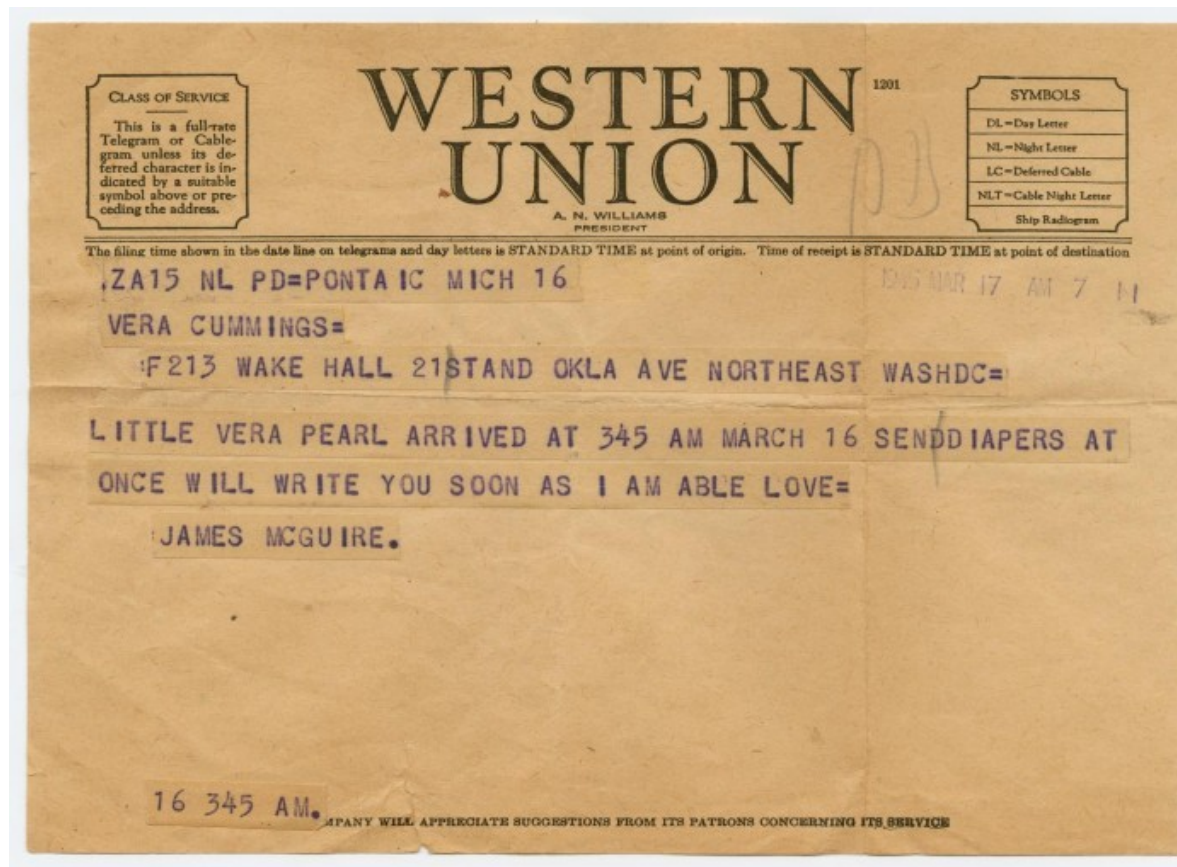 CLASS OF SERVICE
This is a full-rate
Telegram or Cable-
gram unless its de-
ferred character is in-
dicated by a suitable
symbol above or pre-
ceding the address.
WESTERN
UNION
1201
A. N. WILLIAMS
PRESIDENT
SYMBOLS
DL=Day Letter
NL=Night Letter
LC=Deferred Cable
NLT=Cable Night Letter
Ship Radiogram
The filing time shown in the date line on telegrams and day letters is STANDARD TIME at point of origin. Time of receipt is STANDARD TIME at point of destination
.ZA15 NL PD=PONTAIC MICH 16
MAR 17 AM 7
VERA CUMMINGS=
:F213 WAKE HALL 21STAND OKLA AVE NORTHEAST WASHDC=
LITTLE VERA PEARL ARRIVED AT 345 AM MARCH 16 SENDDIAPERS AT
ONCE WILL WRITE YOU SOON AS I AM ABLE LOVE=
:JAMES MCGUIRE.
16 345 AM.
MPANY WILL APPRECIATE SUGGESTIONS FROM ITS PATRONS CONCERNING ITS SERVICE